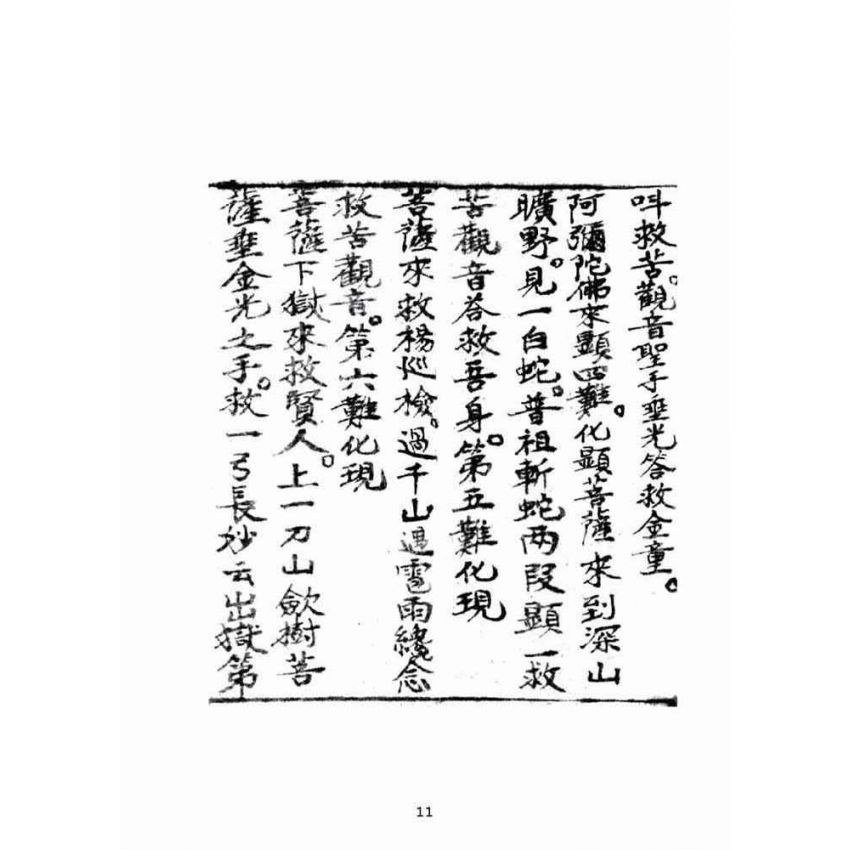 叫救苦。觀音聖手垂光答救金童。
阿彌陀佛來顯四難。化顯菩薩來到深山
曠野。見一白蛇。普祖斬蛇两段顯一救
苦觀音答救吾身。第五難化現
菩薩來救楊巡檢。過千山遇雹雨纔念
救苦觀音。第六難化現
菩薩下獄來救賢人。上一刀山歛樹菩
薩垂金光之手。救一弓長妙云出獄第
11